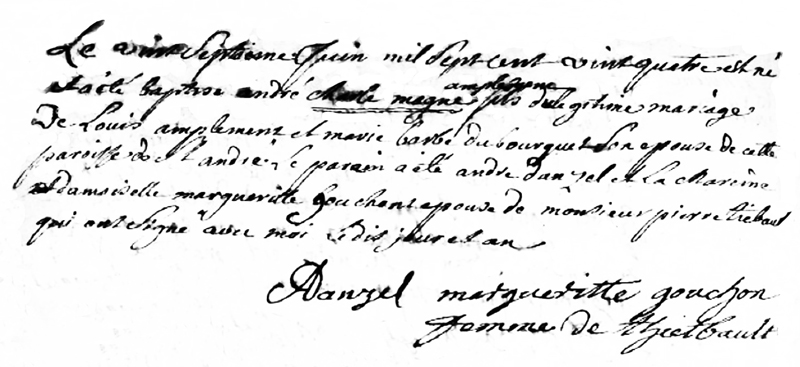 Le vint Septieme Juin mil Sept cent vint quatre est né
et a été baptise andré charle magne amplement fils du legitime mariage
De Louis amplement et marie barbe du bourguet Son epouse de cette
paroisse de st andré Le parain a été andre danzel et La mareine
damoiselle margueritte Gouchon epouse de monsieur pierre tiebaut
qui ont Signé avec moi Ledit jour et an
ADanzel margueritte gouchon
femme de thiebault